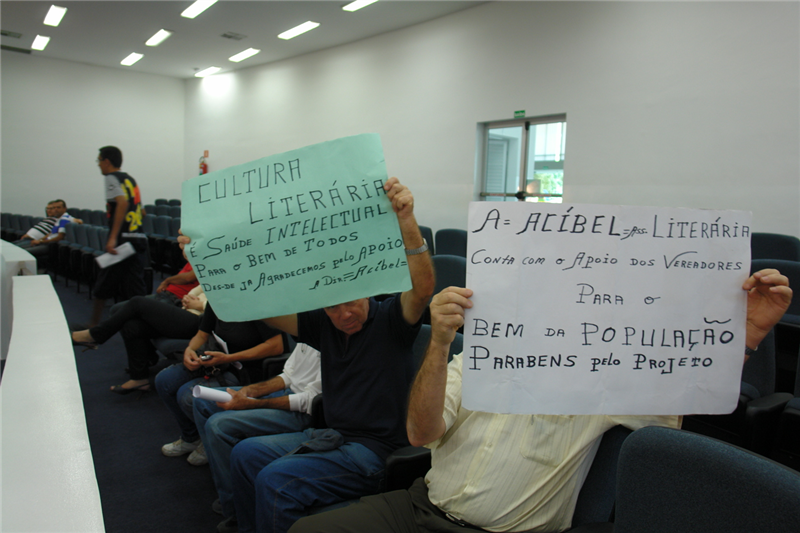 CULTURA
LITERÁRIA
É SAÚDE INTELECTUAL
PARA O BEM DE TODOS
DES-DE JÁ AGRADECEMOS PELO APOIO
A DIR=ACÍBEL=
A= ACÍBEL=ASS. LITERÁRIA
CONTA COM O APOIO DOS VEREADORES
PARA O
BEM DA POPULAÇÃO
PARABENS PELO PROJETO